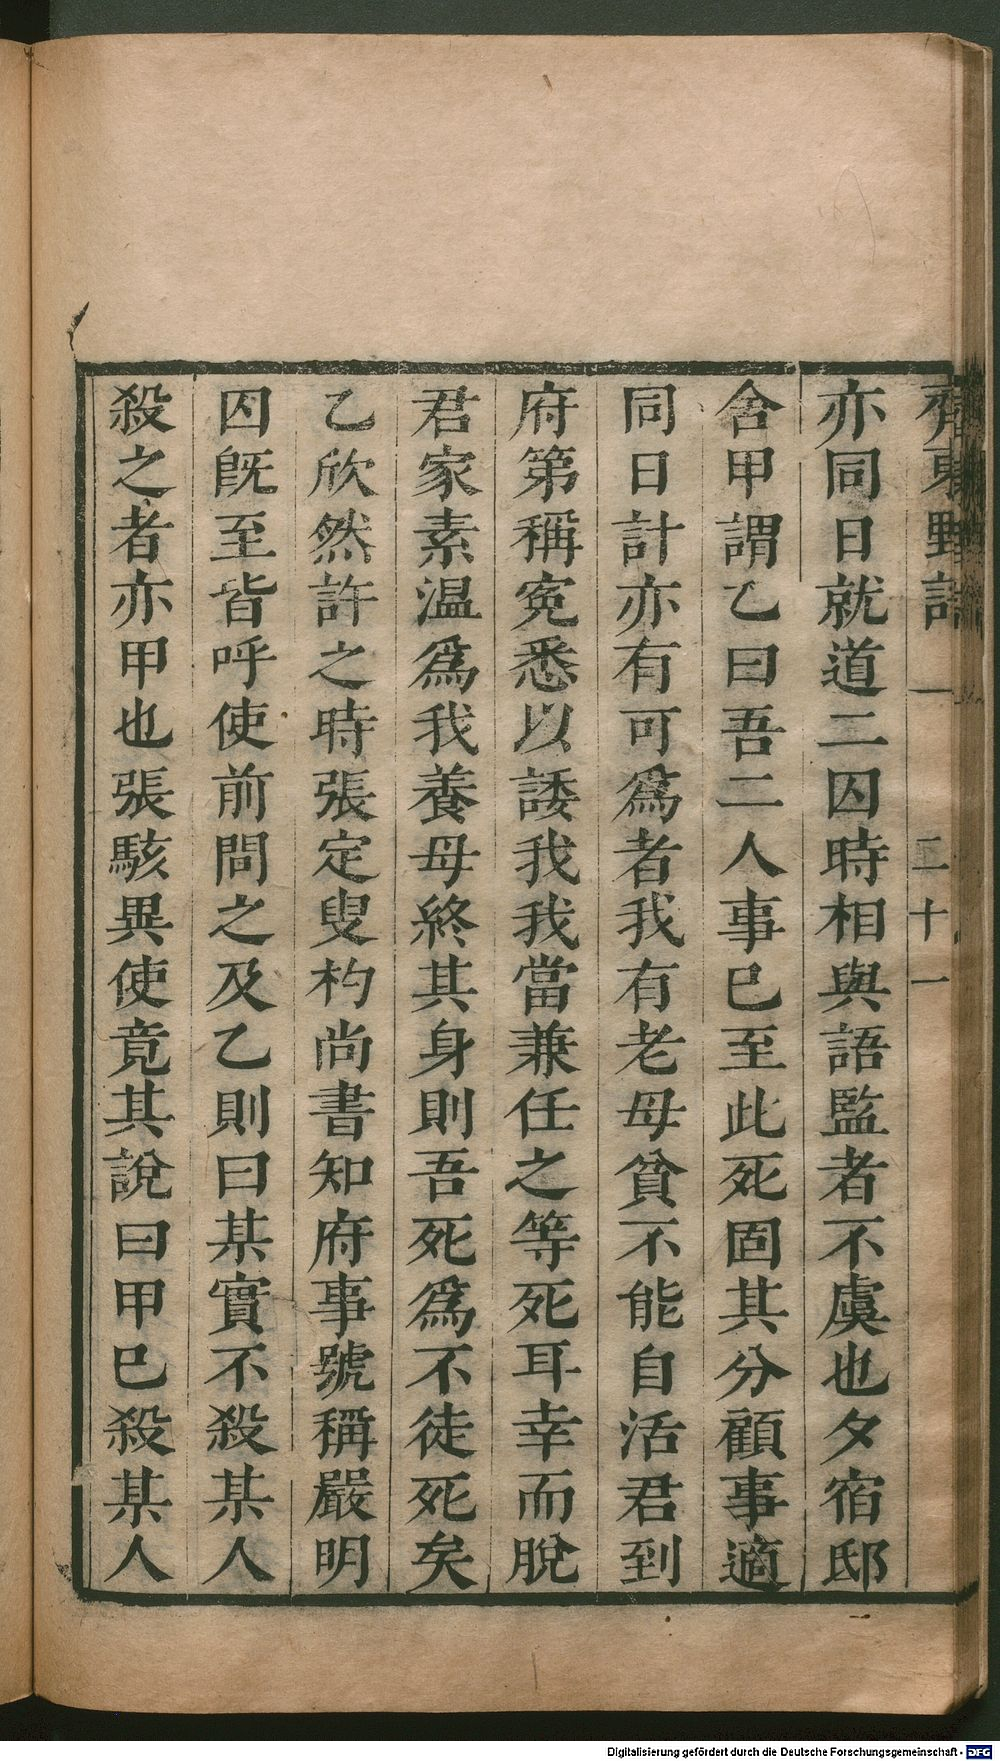 齊東野語 一 二十一
亦同日就道二囚時相與語監者不虞也夕宿邸
舍甲謂乙曰吾二人事已至此死固其分顧事適
同日計亦有可爲者我有老母貧不能自活君到
府第稱寃悉以諉我我當兼任之等死耳幸而脫
君家素温爲我養母終其身則吾死爲不徒死矣
乙欣然許之時張定叟杓尚書知府事號稱嚴明
囚旣至皆呼使前問之及乙則曰某實不殺某人
殺之者亦甲也張駭異使竟其說曰甲已殺某人
Digitalisierung gefördert durch die Deutsche Forschungsgemeinschaft - DFG